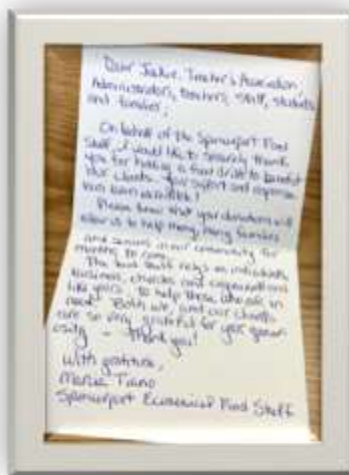 Dear Teacher's Association,
Administrators, teachers, staff, students
and families,
On behalf of the Spencerport Food
Shelf, I would like to sincerely thank
you for holding a food drive to benefit
our clients. Your support and response
has been incredible!
Please know that your donations will
allow us to help many, many families
and seniors in our community for
months to come.
The food shelf relys on individuals,
business, churches and organizations
like yours, to help those who are in
need. Both we, and our clients
are so very grateful for your gener-
osity - Thank you!
With gratitude,
Marcia Tiano
Spencerport Ecumenical Food Shelf